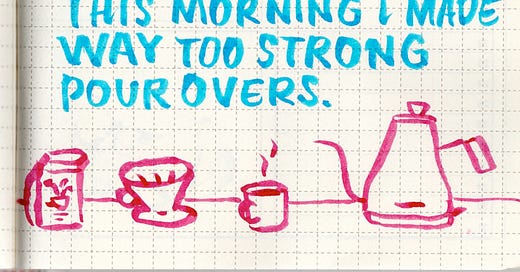 THIS MORNING I MADE
WAY TOO STRONG
POUR OVERS.